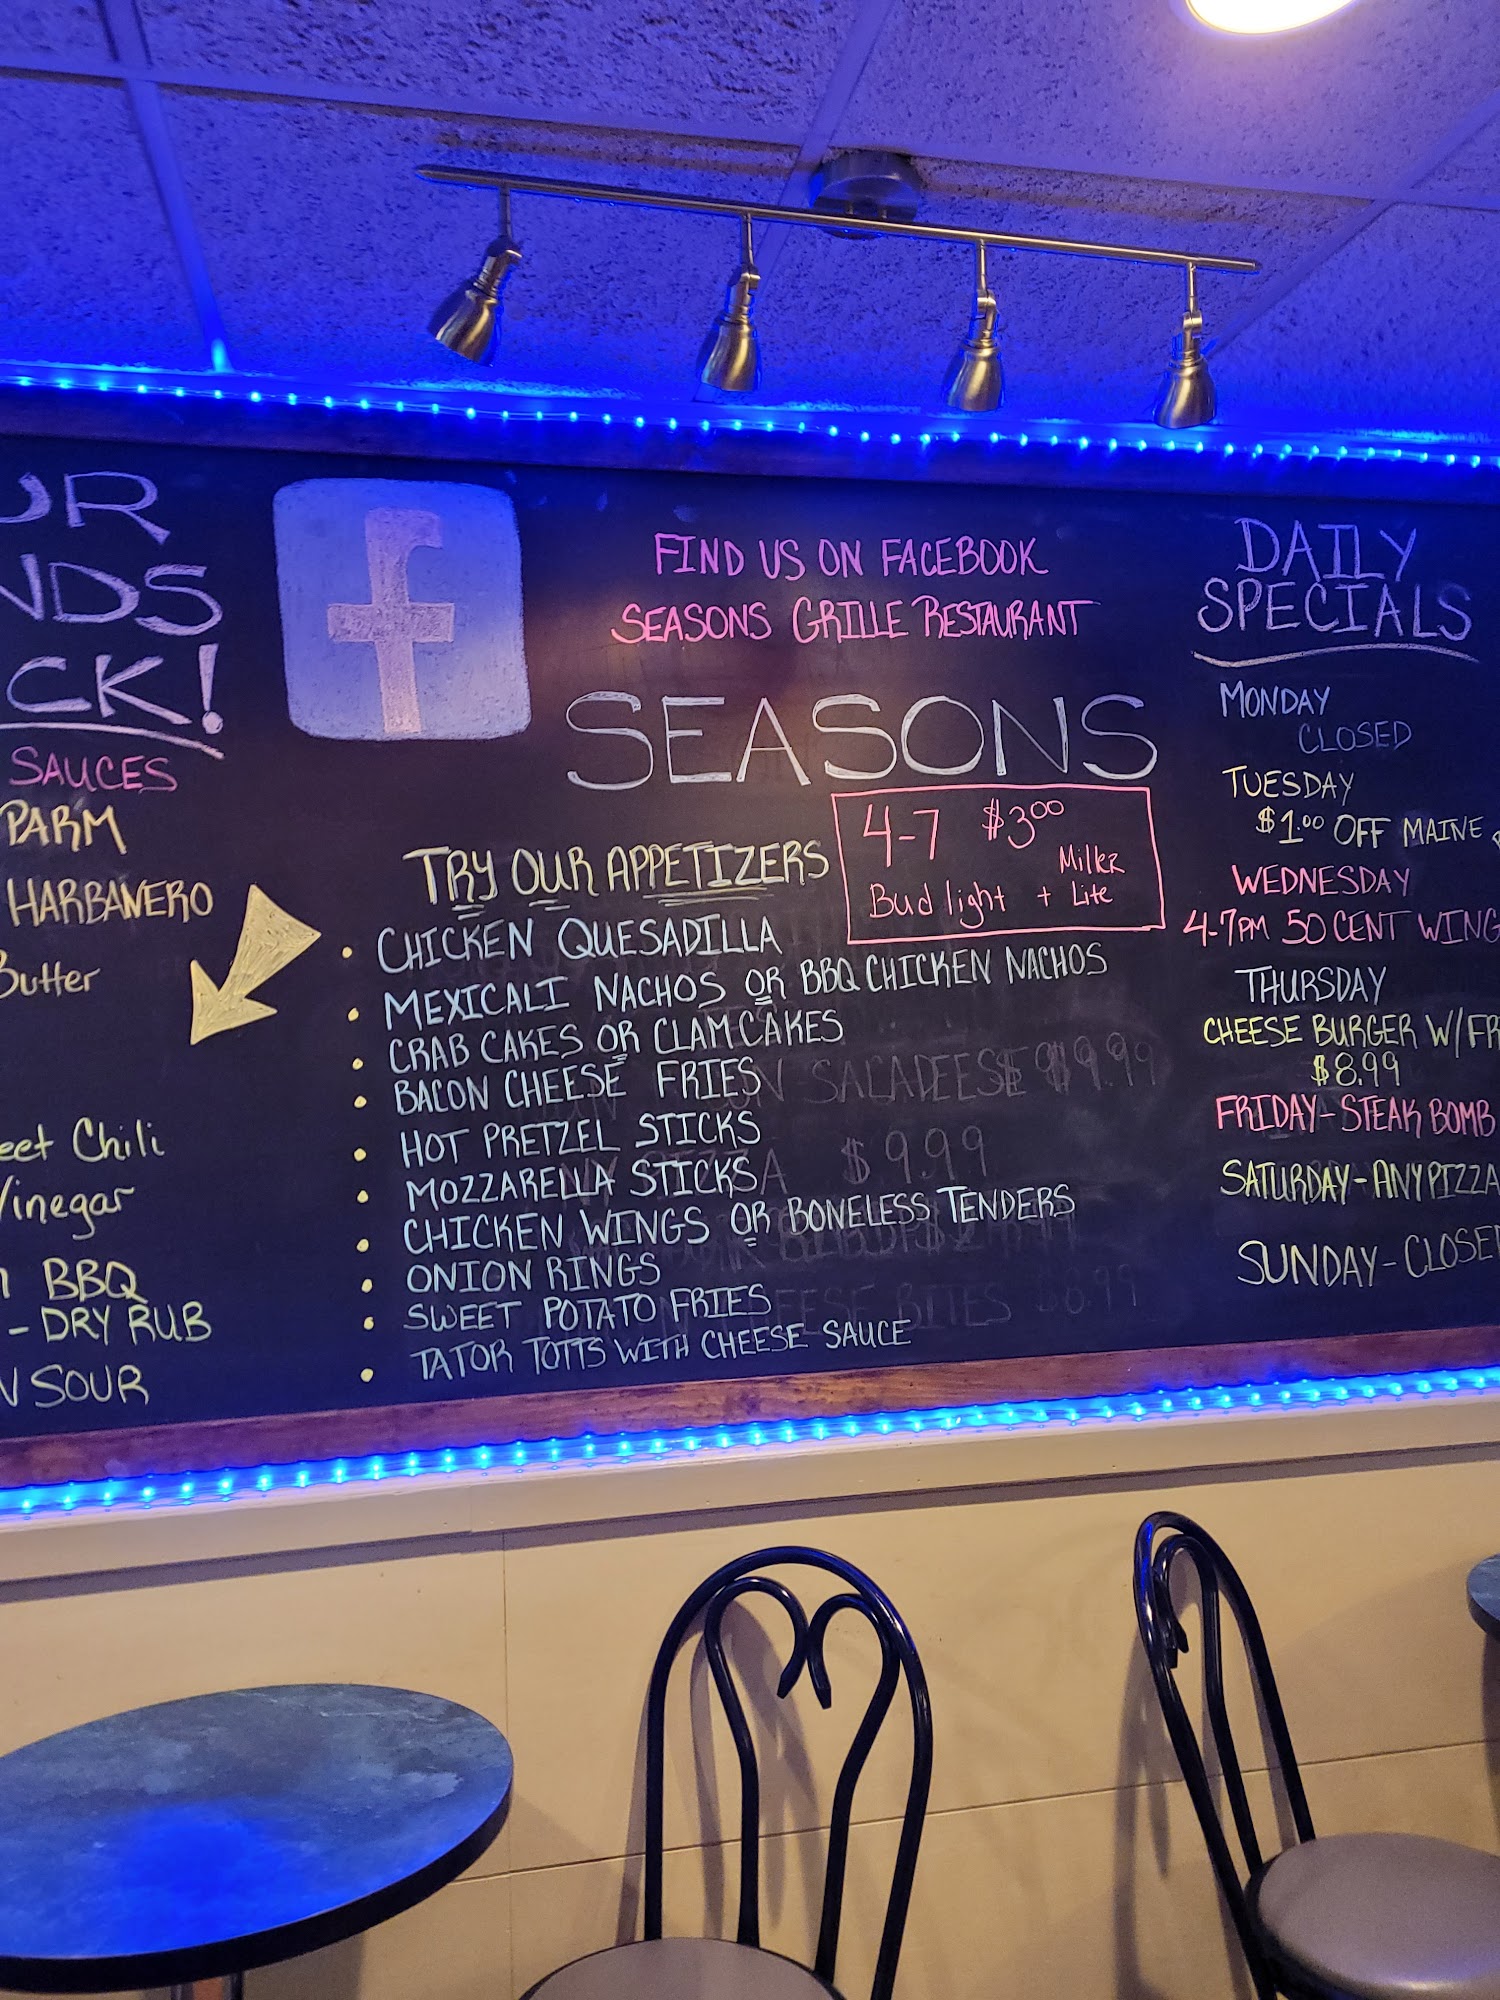 UR
NDS
CK!
SAUCES
PARM
HARBANERO
Butter
eet Chili
Vinegar
BBQ
- DRY RUB
N SOUR
f
FIND US ON FACEBOOK
SEASONS GRILLE RESTAURANT
SEASONS
4-7 $3.00
Miller
Bud light + Lite
TRY OUR APPETIZERS
• CHICKEN QUESADILLA
• MEXICALI NACHOS OR BBQ CHICKEN NACHOS
• CRAB CAKES OR CLAM CAKES
• BACON CHEESE FRIES
• HOT PRETZEL STICKS
• MOZZARELLA STICKS
• CHICKEN WINGS OR BONELESS TENDERS
• ONION RINGS
• SWEET POTATO FRIES
• TATOR TOTTS WITH CHEESE SAUCE
DAILY
SPECIALS
MONDAY
CLOSED
TUESDAY
$1.00 OFF MAINE
WEDNESDAY
4-7PM 50 CENT WING
THURSDAY
CHEESE BURGER W/FR
$8.99
FRIDAY - STEAK BOMB
SATURDAY - ANY PIZZA
SUNDAY - CLOSE